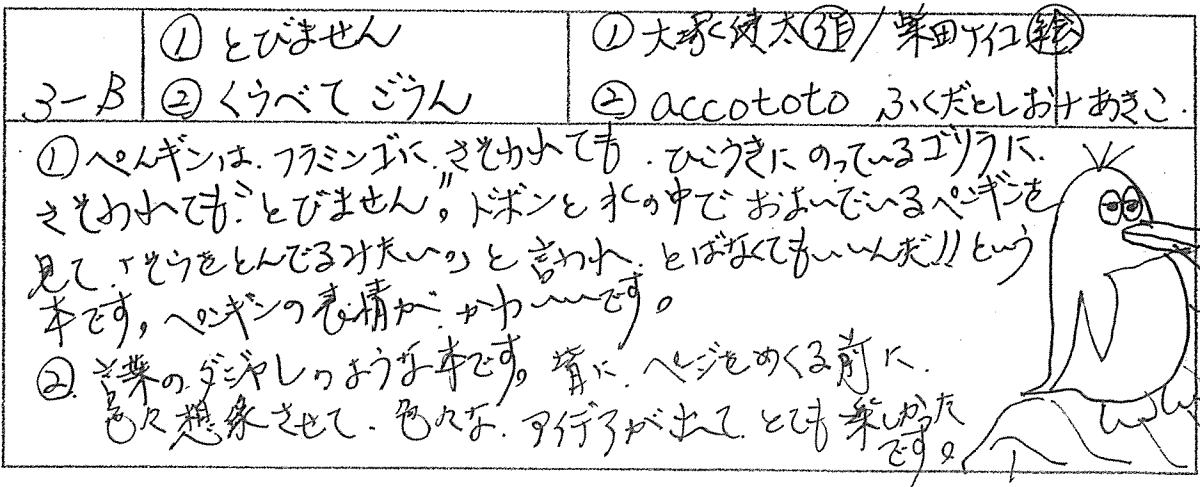 3-B
① とびません
② くらべて ごらん
① 大塚健太 作 / 柴田ケイコ 絵
② accototo ふくだとしお+あきこ.
① ペンギンは、フラミンゴに、さそわれても、ひこうきに のっているゴリラに、
さそわれても、"とびません"。ドボンと 水の中で およいでいるペンギンを
見て、「そらをとんでるみたい。」と 言われ、とばなくてもいいんだ!! という
本です。ペンギンの表情が、かわいいです。
② 言葉の、ダジャレのような本です。皆に、ページをめくる前に、
色々想像させて、色々な、アイデアが出て、とても楽しかった
です。